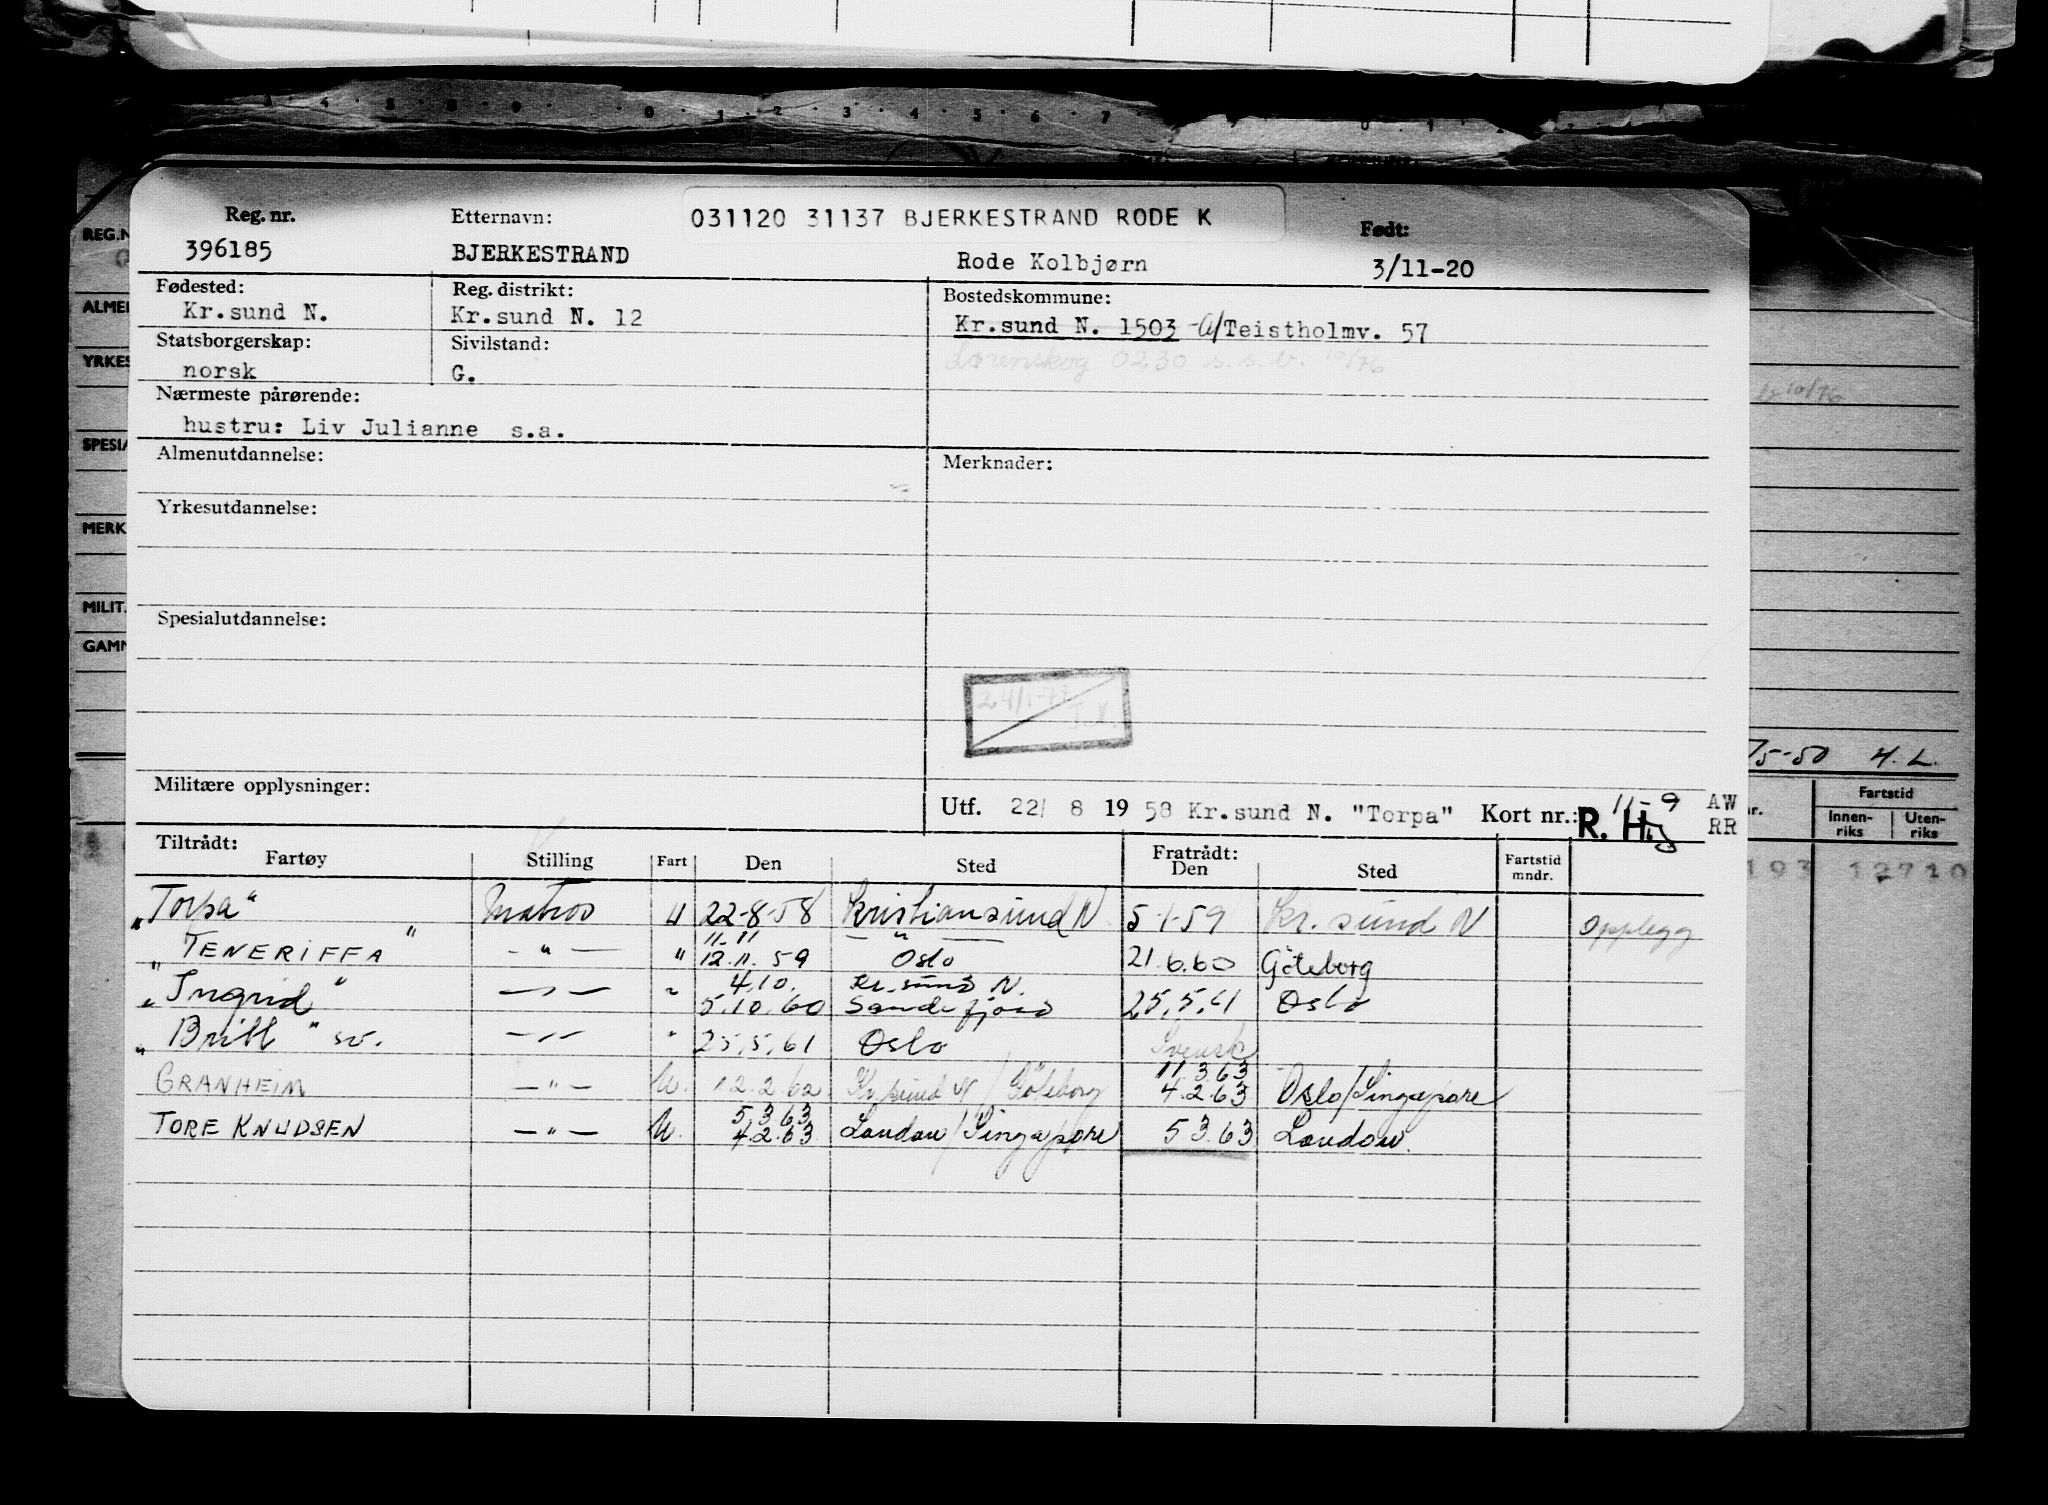 Reg. nr. Etternavn: 031120 31137 BJERKESTRAND RODE K Født:
396185 BJERKESTRAND Rode Kolbjørn 3/11-20
Fødested: Reg. distrikt: Bostedskommune:
Kr.sund N. Kr.sund N. 12 Kr.sund N. 1503 Teistholmv. 57
Statsborgerskap: Sivilstand: Lørenskog 0230 s.s.b. 10/76
norsk G.
Nærmeste pårørende:
hustru: Liv Julianne s.a.
Almenutdannelse: Merknader:
Yrkesutdannelse:
Spesialutdannelse:
24/1-77
Militære opplysninger:
Utf. 22/ 8 19 58 Kr.sund N. "Torpa" Kort nr.: R. H 11-9 AW
RR
Tiltrådt: Fratrådt:
Fartøy Stilling Fart Den Sted Den Sted Fartstid mndr.
"Torpa" Matros U 22-8-58 Kristiansund N 5-1-59 Kr. sund N Opplegg
"TENERIFFA" — " — " 11.11 12.11.59 " Oslo 21.6.60 Göteborg
"Ingrid" — " — " 4.10. 5.10.60 Kr. sund N. Sandefjord 25.5.61 Oslo
"Britt" sv. — " — " 25.5.61 Oslo Svensk
GRANHEIM — " — U. 12.2.62 Kr.sund N / Göteborg 11.3.63 4.2.63 Oslo/Singapore
TORE KNUDSEN — " — U. 5.3.63 4.2.63 London/Singapore 5.3.63 London.
REG.N
ALMEN
YRKES
SPESIA
MERK
MILIT.
GAMM
10/76
75-50 H.L.
nr. Fartstid
Innen-riks Uten-riks
193 12710